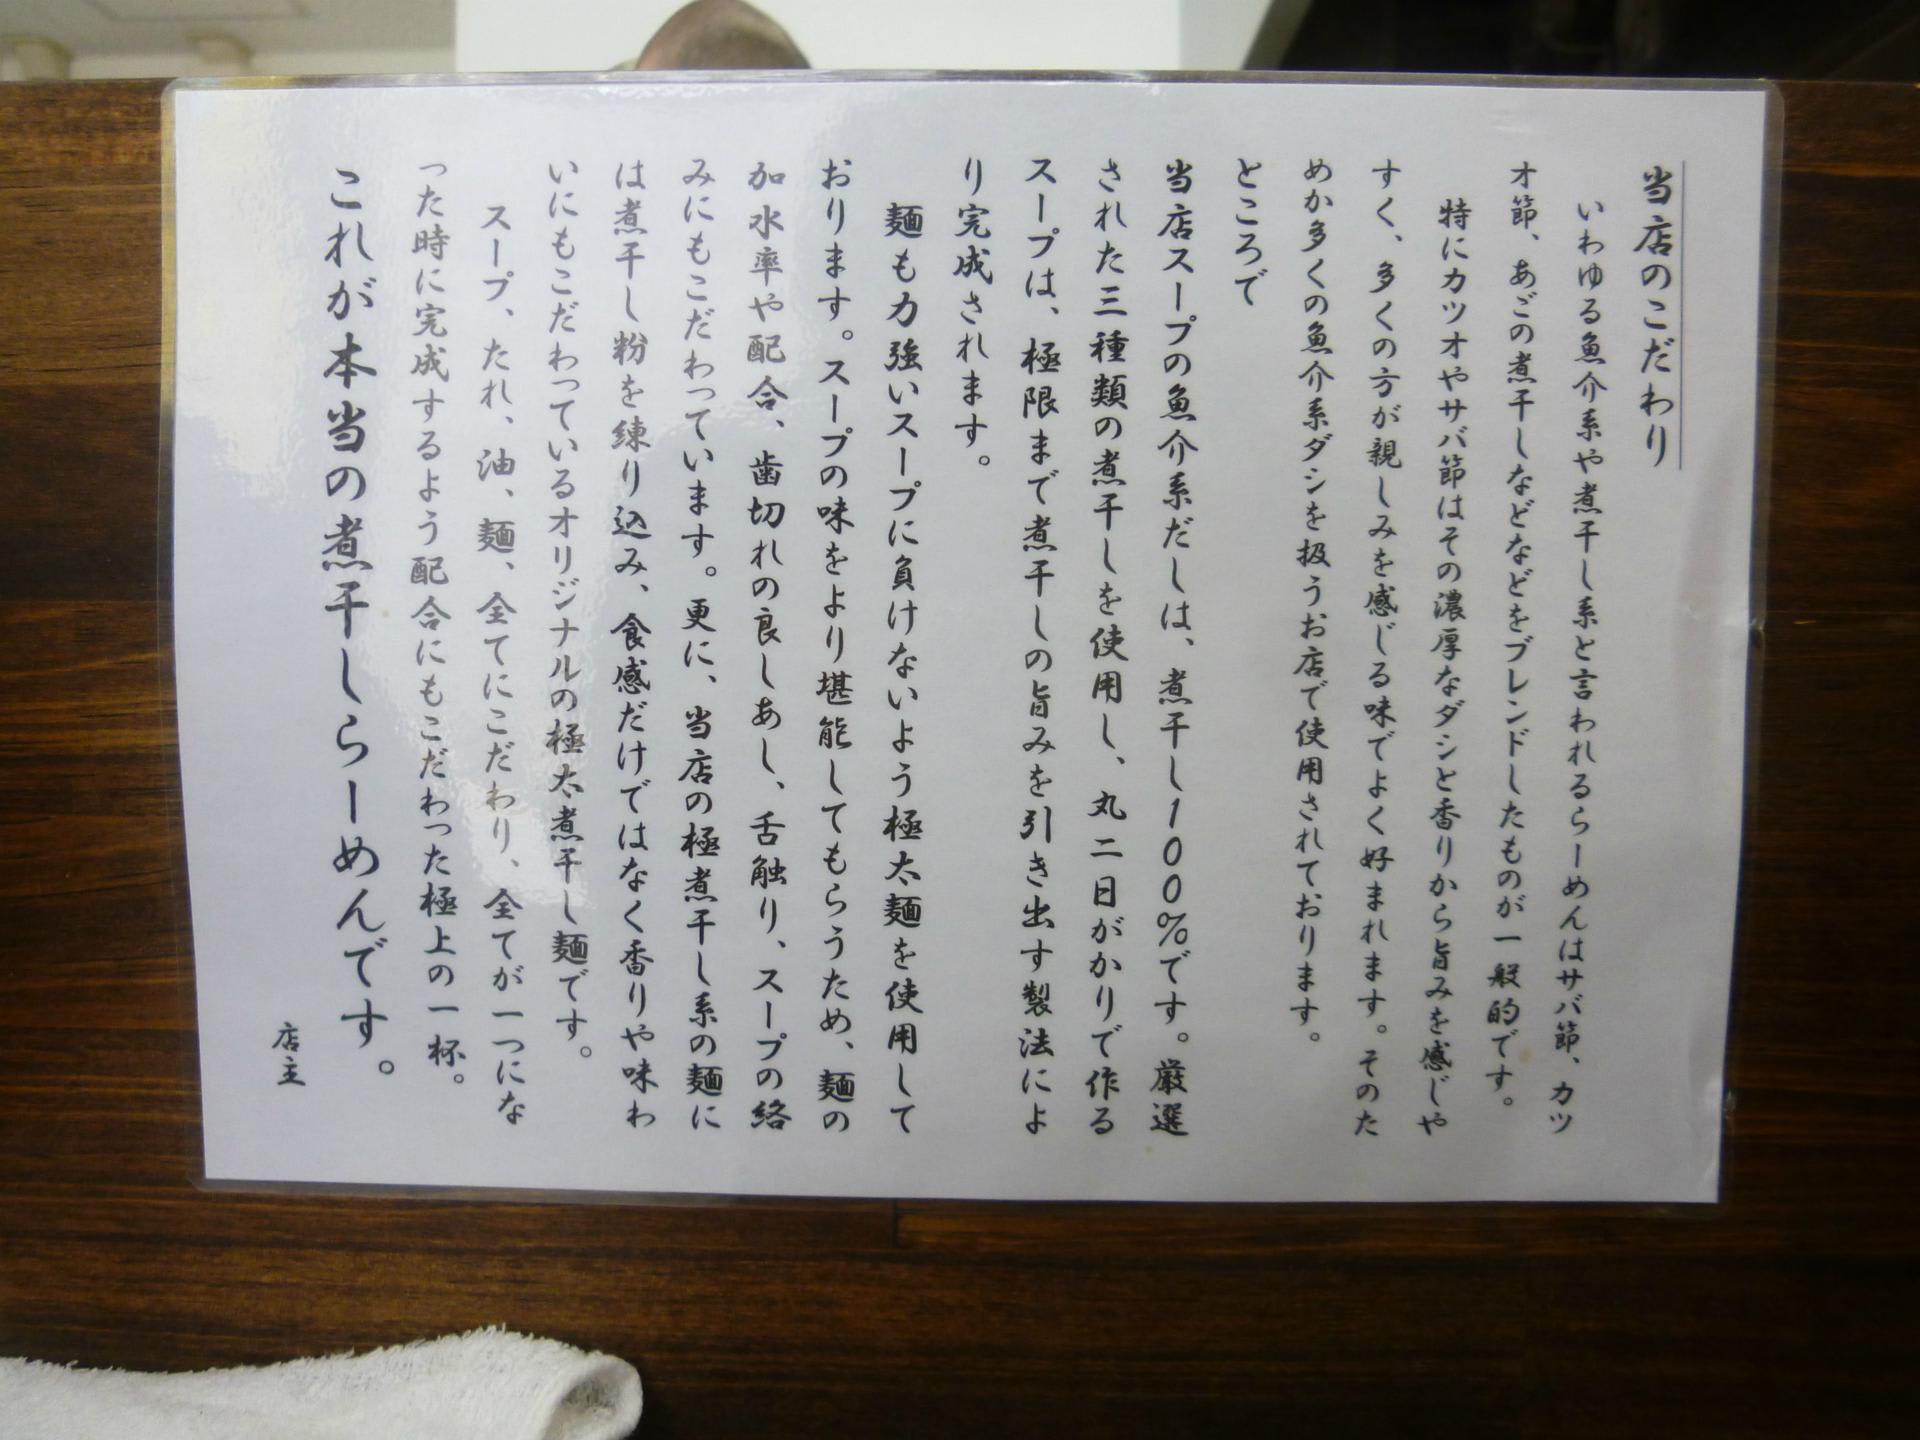 当店のこだわり
いわゆる魚介系や煮干し系と言われるらーめんはサバ節、カツ
オ節、あごの煮干しなどなどをブレンドしたものが一般的です。
特にカツオやサバ節はその濃厚なダシと香りから旨みを感じや
すく、多くの方が親しみを感じる味でよく好まれます。そのた
めか多くの魚介系ダシを扱うお店で使用されております。
ところで
当店スープの魚介系だしは、煮干し100%です。厳選
された三種類の煮干しを使用し、丸二日がかりで作る
スープは、極限まで煮干しの旨みを引き出す製法によ
り完成されます。
麺も力強いスープに負けないよう極太麺を使用して
おります。スープの味をより堪能してもらうため、麺の
加水率や配合、歯切れの良しあし、舌触り、スープの絡
みにもこだわっています。更に、当店の極煮干し系の麺に
は煮干し粉を練り込み、食感だけではなく香りや味わ
いにもこだわっているオリジナルの極太煮干し麺です。
スープ、たれ、油、麺、全てにこだわり、全てが一つにな
った時に完成するよう配合にもこだわった極上の一杯。
これが本当の煮干しらーめんです。
店主